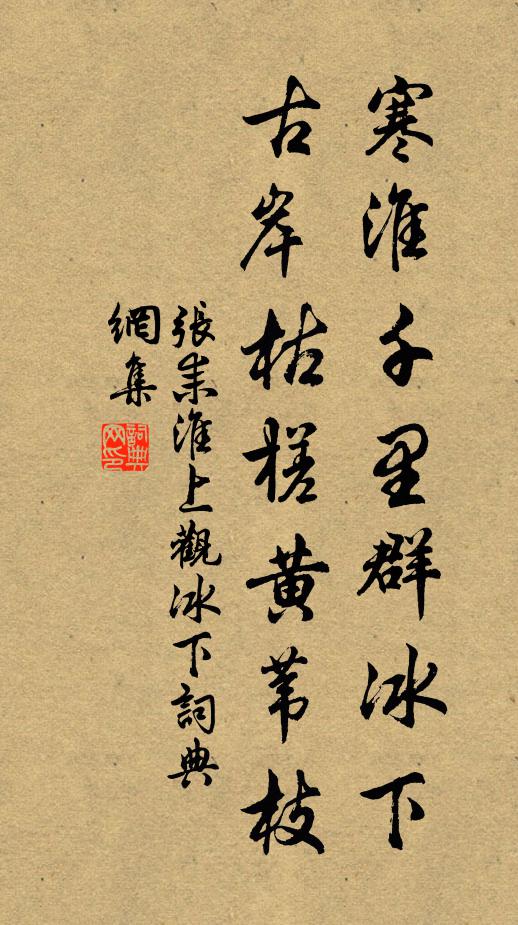 寒淮千里群冰下
古岸枯槎黄苇枝
張耒淮上觀冰下詞典
網集
詞典
网印